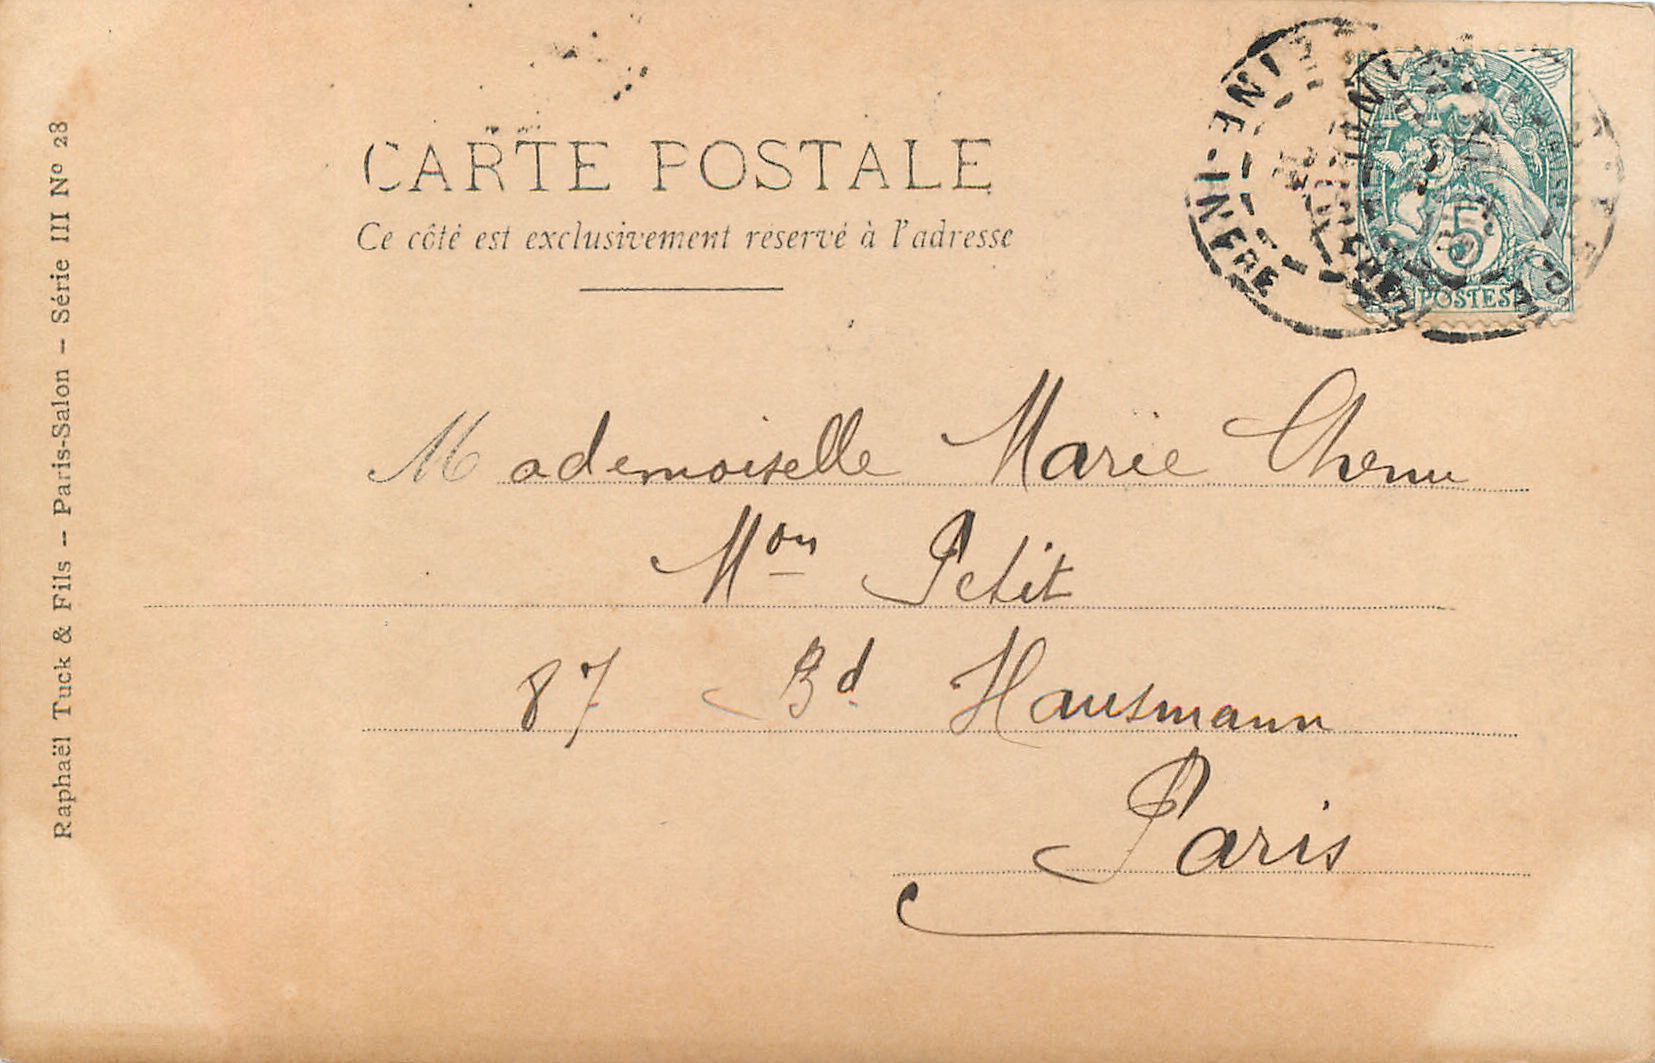 CARTE POSTALE
Ce côté est exclusivement réservé à l'adresse
Raphaël Tuck & Fils — Paris-Salon — Série III Nº 28
INFRE
5
POSTES
Mademoiselle Marie Chenu
Mon Petit
87 Bd Hausmann
Paris